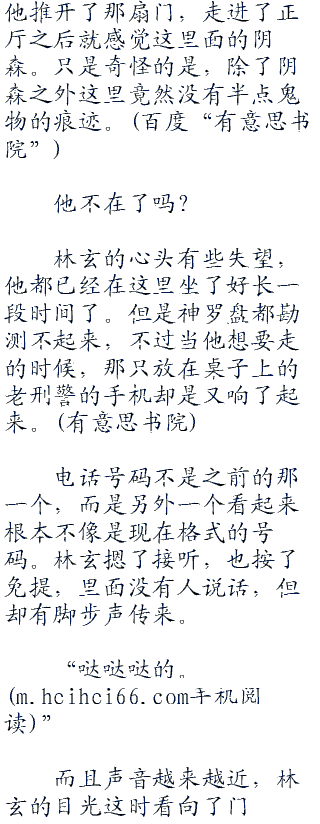 他推开了那扇门，走进了正
厅之后就感觉这里面的阴
森。只是奇怪的是，除了阴
森之外这里竟然没有半点鬼
物的痕迹。(百度“有意思书
院”)
他不在了吗？
林玄的心头有些失望，
他都已经在这里坐了好长一
段时间了。但是神罗盘都勘
测不起来，不过当他想要走
的时候，那只放在桌子上的
老刑警的手机却是又响了起
来。(有意思书院)
电话号码不是之前的那
一个，而是另外一个看起来
根本不像是现在格式的号
码。林玄摁了接听，也按了
免提，里面没有人说话，但
却有脚步声传来。
“哒哒哒的。
(m.hcihci66.com手机阅
读)”
而且声音越来越近，林
玄的目光这时看向了门